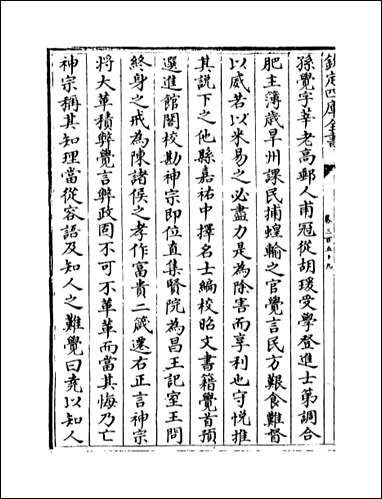 欽定四庫全書
卷三百五十九
孫覺字莘老高郵人甫冠從胡瑗受學登進士第調合
肥主簿歲旱州課民捕蝗輸之官覺言民方艱食難督
以威若以米易之必盡力是為除害而享利也守悅推
其說下之他縣嘉祐中擇名士編校昭文書籍覺首預
選進館閣校勘神宗即位直集賢院為昌王記室王問
終身之戒為陳諸侯之孝作富貴二箴遷右正言神宗
將大革積弊覺言弊政固不可不革革而當其悔乃亡
神宗稱其知理嘗從容語及知人之難覺曰堯以知人